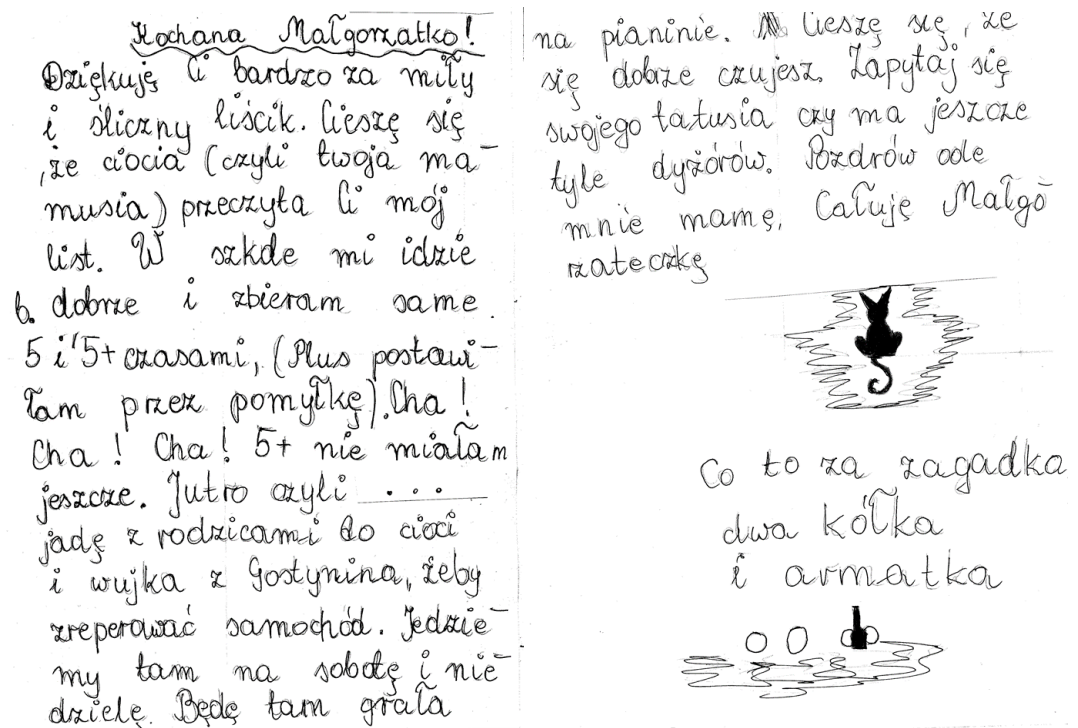 Kochana Małgorzatko!
Dziękuję Ci bardzo za miły
i śliczny liścik. Cieszę się
,że ciocia (czyli twoja ma-
musia) przeczyta Ci mój
list. W szkole mi idzie
b. dobrze i zbieram same
5 i 5+ czasami, (Plus postawi-
łam przez pomyłkę). Cha!
Cha! Cha! 5+ nie miałam
jeszcze. Jutro czyli ...
jadę z rodzicami do cioci
i wujka z Gostynina, żeby
zreperować samochód. Jedzie-
my tam na sobotę i nie-
dzielę. Będę tam grała
na pianinie. Cieszę się, że
się dobrze czujesz. Zapytaj się
swojego tatusia czy ma jeszcze
tyle dyżórów. Pozdrów ode
mnie mamę. Całuję Małgo-
rzateczkę
Co to za zagadka
dwa kółka
i armatka